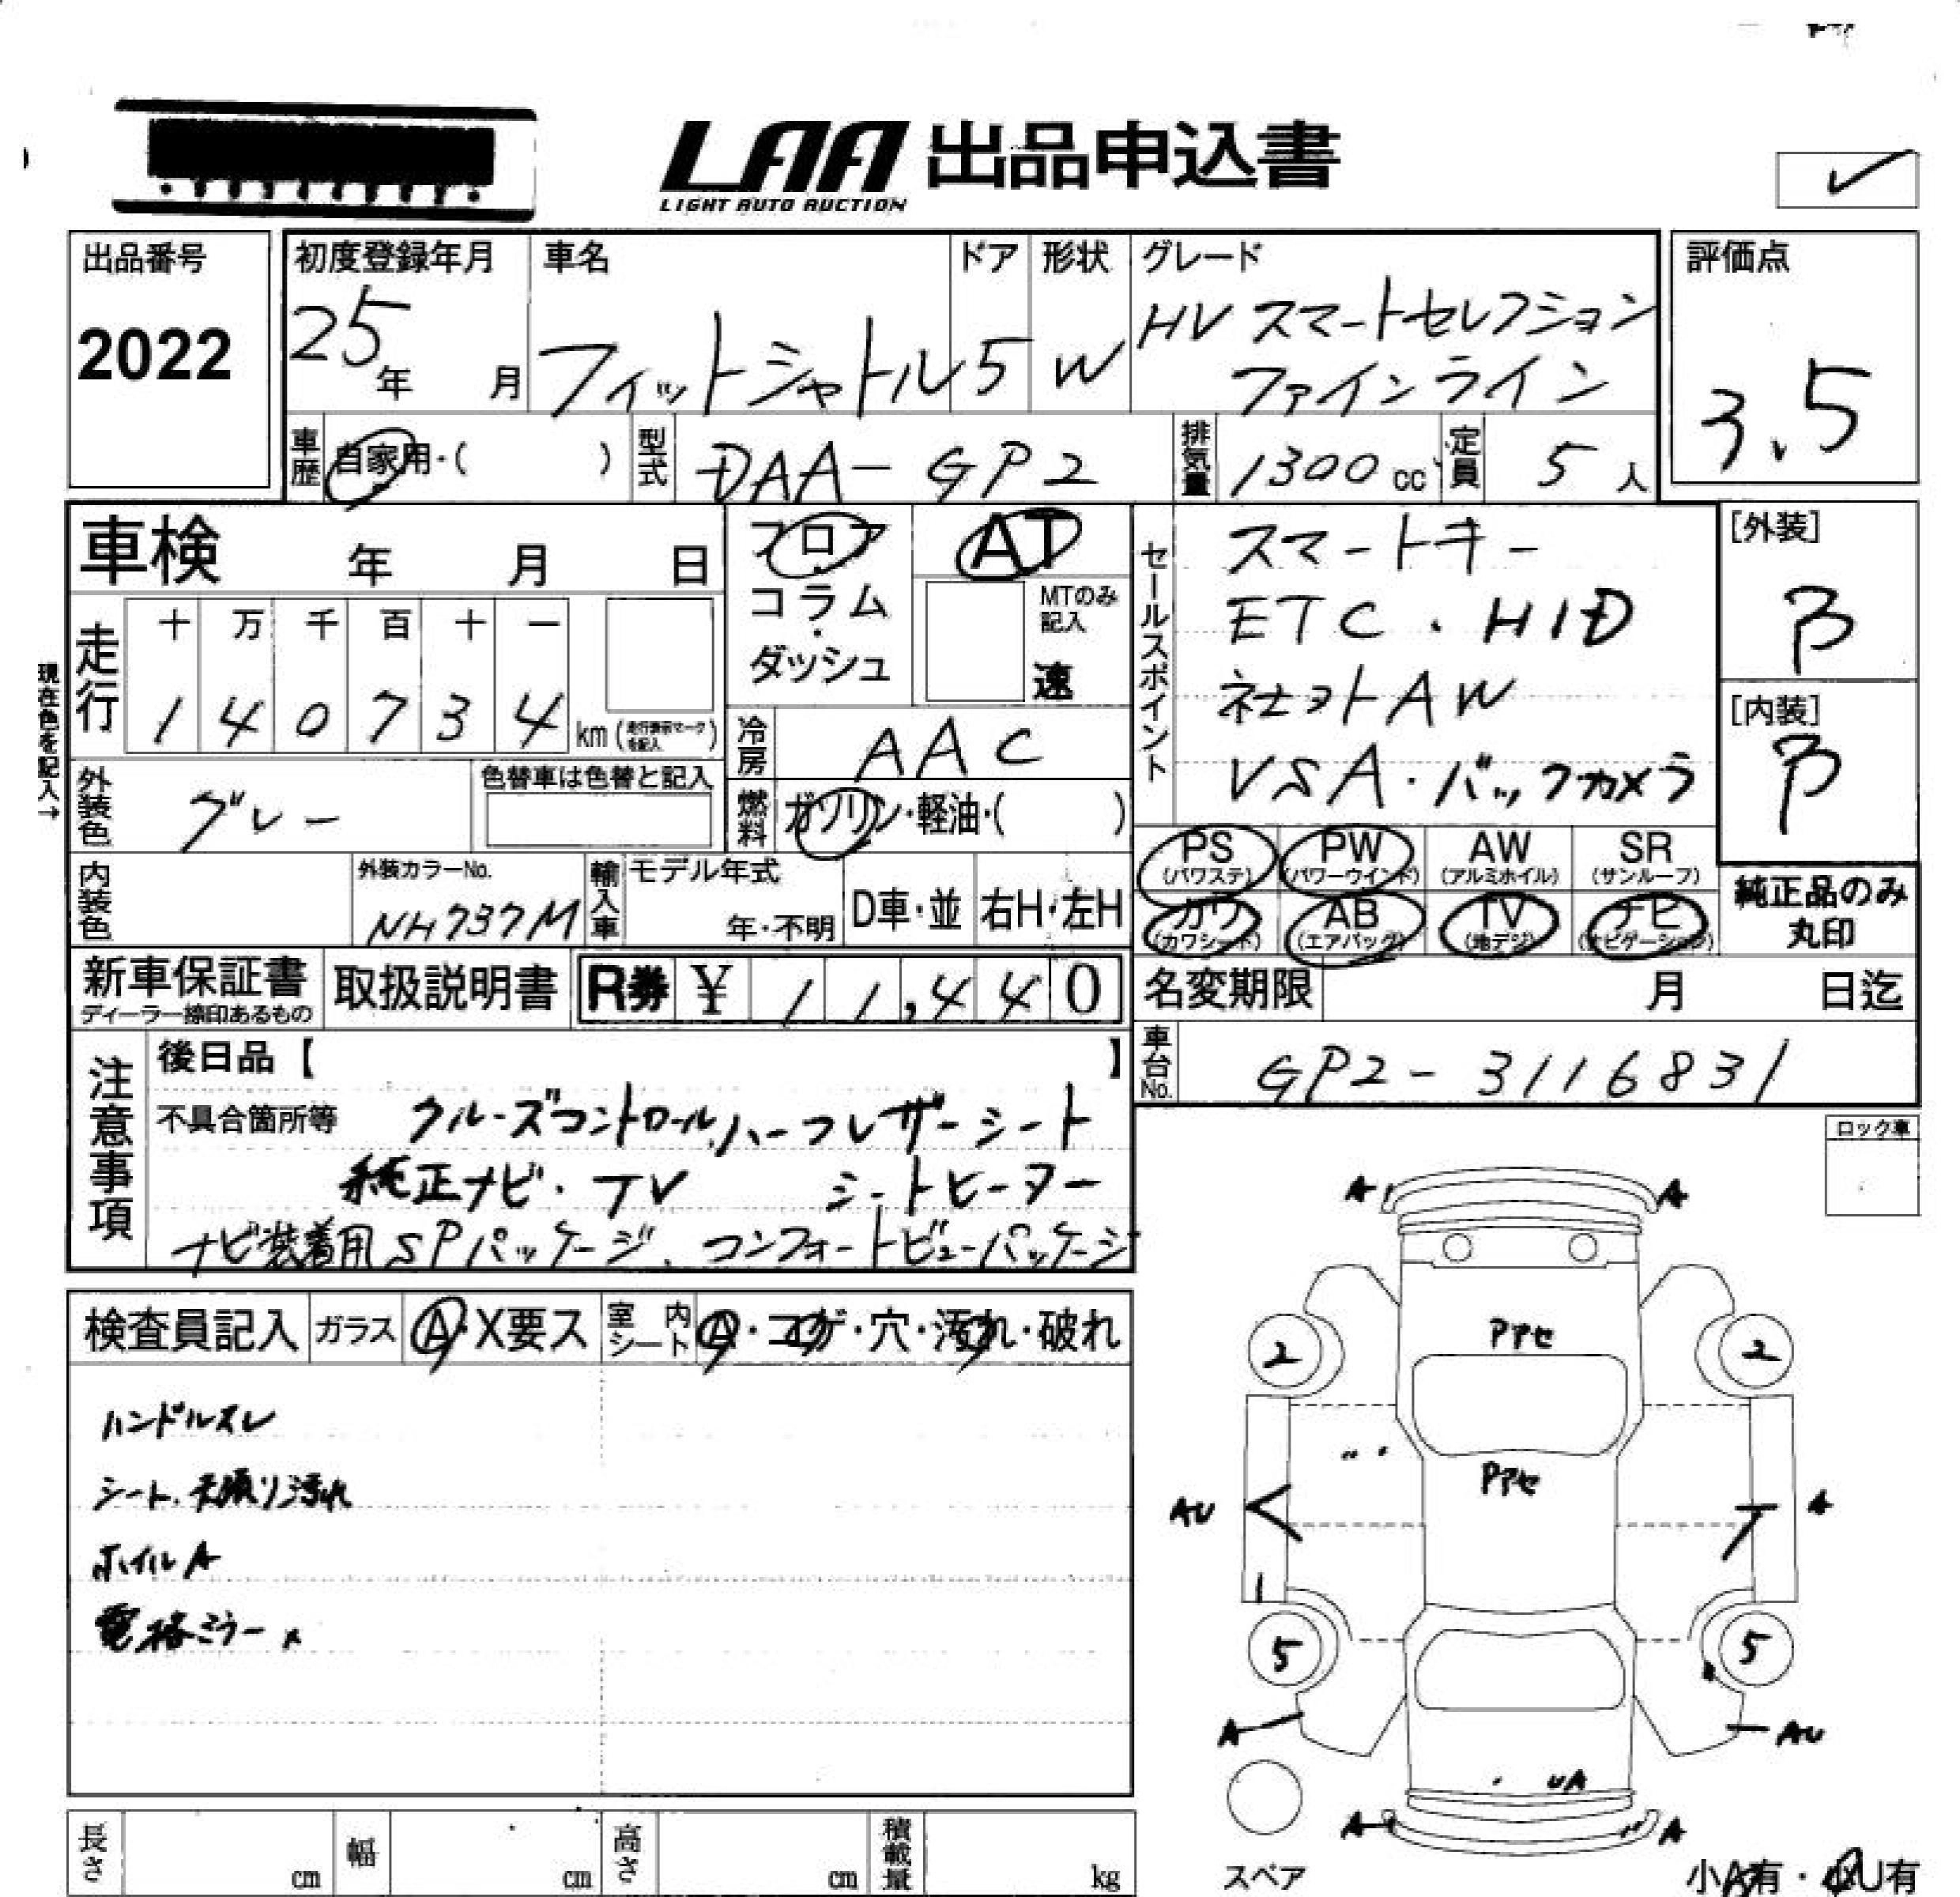 LAA 出品申込書
LIGHT AUTO AUCTION
出品番号
2022
初度登録年月
25年 月
車名
フィットシャトル
ドア
5
形状
W
グレード
HV スマートセレクション
ファインライン
評価点
3.5
車歴
自家用・( )
型式
DAA-GP2
排気量
1300cc
定員
5人
車検 年 月 日
フロア
コラム
・
ダッシュ
AT
MTのみ
記入
速
セールスポイント
スマートキー
ETC・HID
社ヨトAW
VSA・バックカメラ
[外装]
B
[内装]
B
現在色を記入→
走行
十 万 千 百 十 一
1 4 0 7 3 4 km (走行換算マークを記入)
冷房
AAC
外装色
グレー
色替車は色替と記入
燃料
ガソリン・軽油・( )
内装色
外装カラーNo.
NH737M
輸入車
モデル年式
年・不明
D車・並
右H・左H
PS
(パワステ)
PW
(パワーウインド)
AW
(アルミホイル)
SR
(サンルーフ)
カワ
(カワシート)
AB
(エアバッグ)
TV
(地デジ)
ナビ
(ナビゲーション)
純正品のみ
丸印
新車保証書
ディーラー捺印あるもの
取扱説明書
R券 ¥ 11,440
名変期限 月 日迄
車台No.
GP2-3116831
注意事項
後日品【 】
不具合箇所等 クルーズコントロール,ハーフレザーシート
純正ナビ・TV シートヒーター
ナビ装着用SPパッケージ、コンフォートビューパッケージ
ロック車
検査員記入
ガラス
A・X要ス
室内シート
A・コゲ・穴・汚れ・破れ
ハンドルスレ
シート、天張り汚れ
ホイルA
電格ミラー×
A A
2 2
Pアセ
Pアセ
AU A
5 5
A AU
UA
A A
スペア
小A有・小U有
長さ cm
幅 cm
高さ cm
積載量 kg